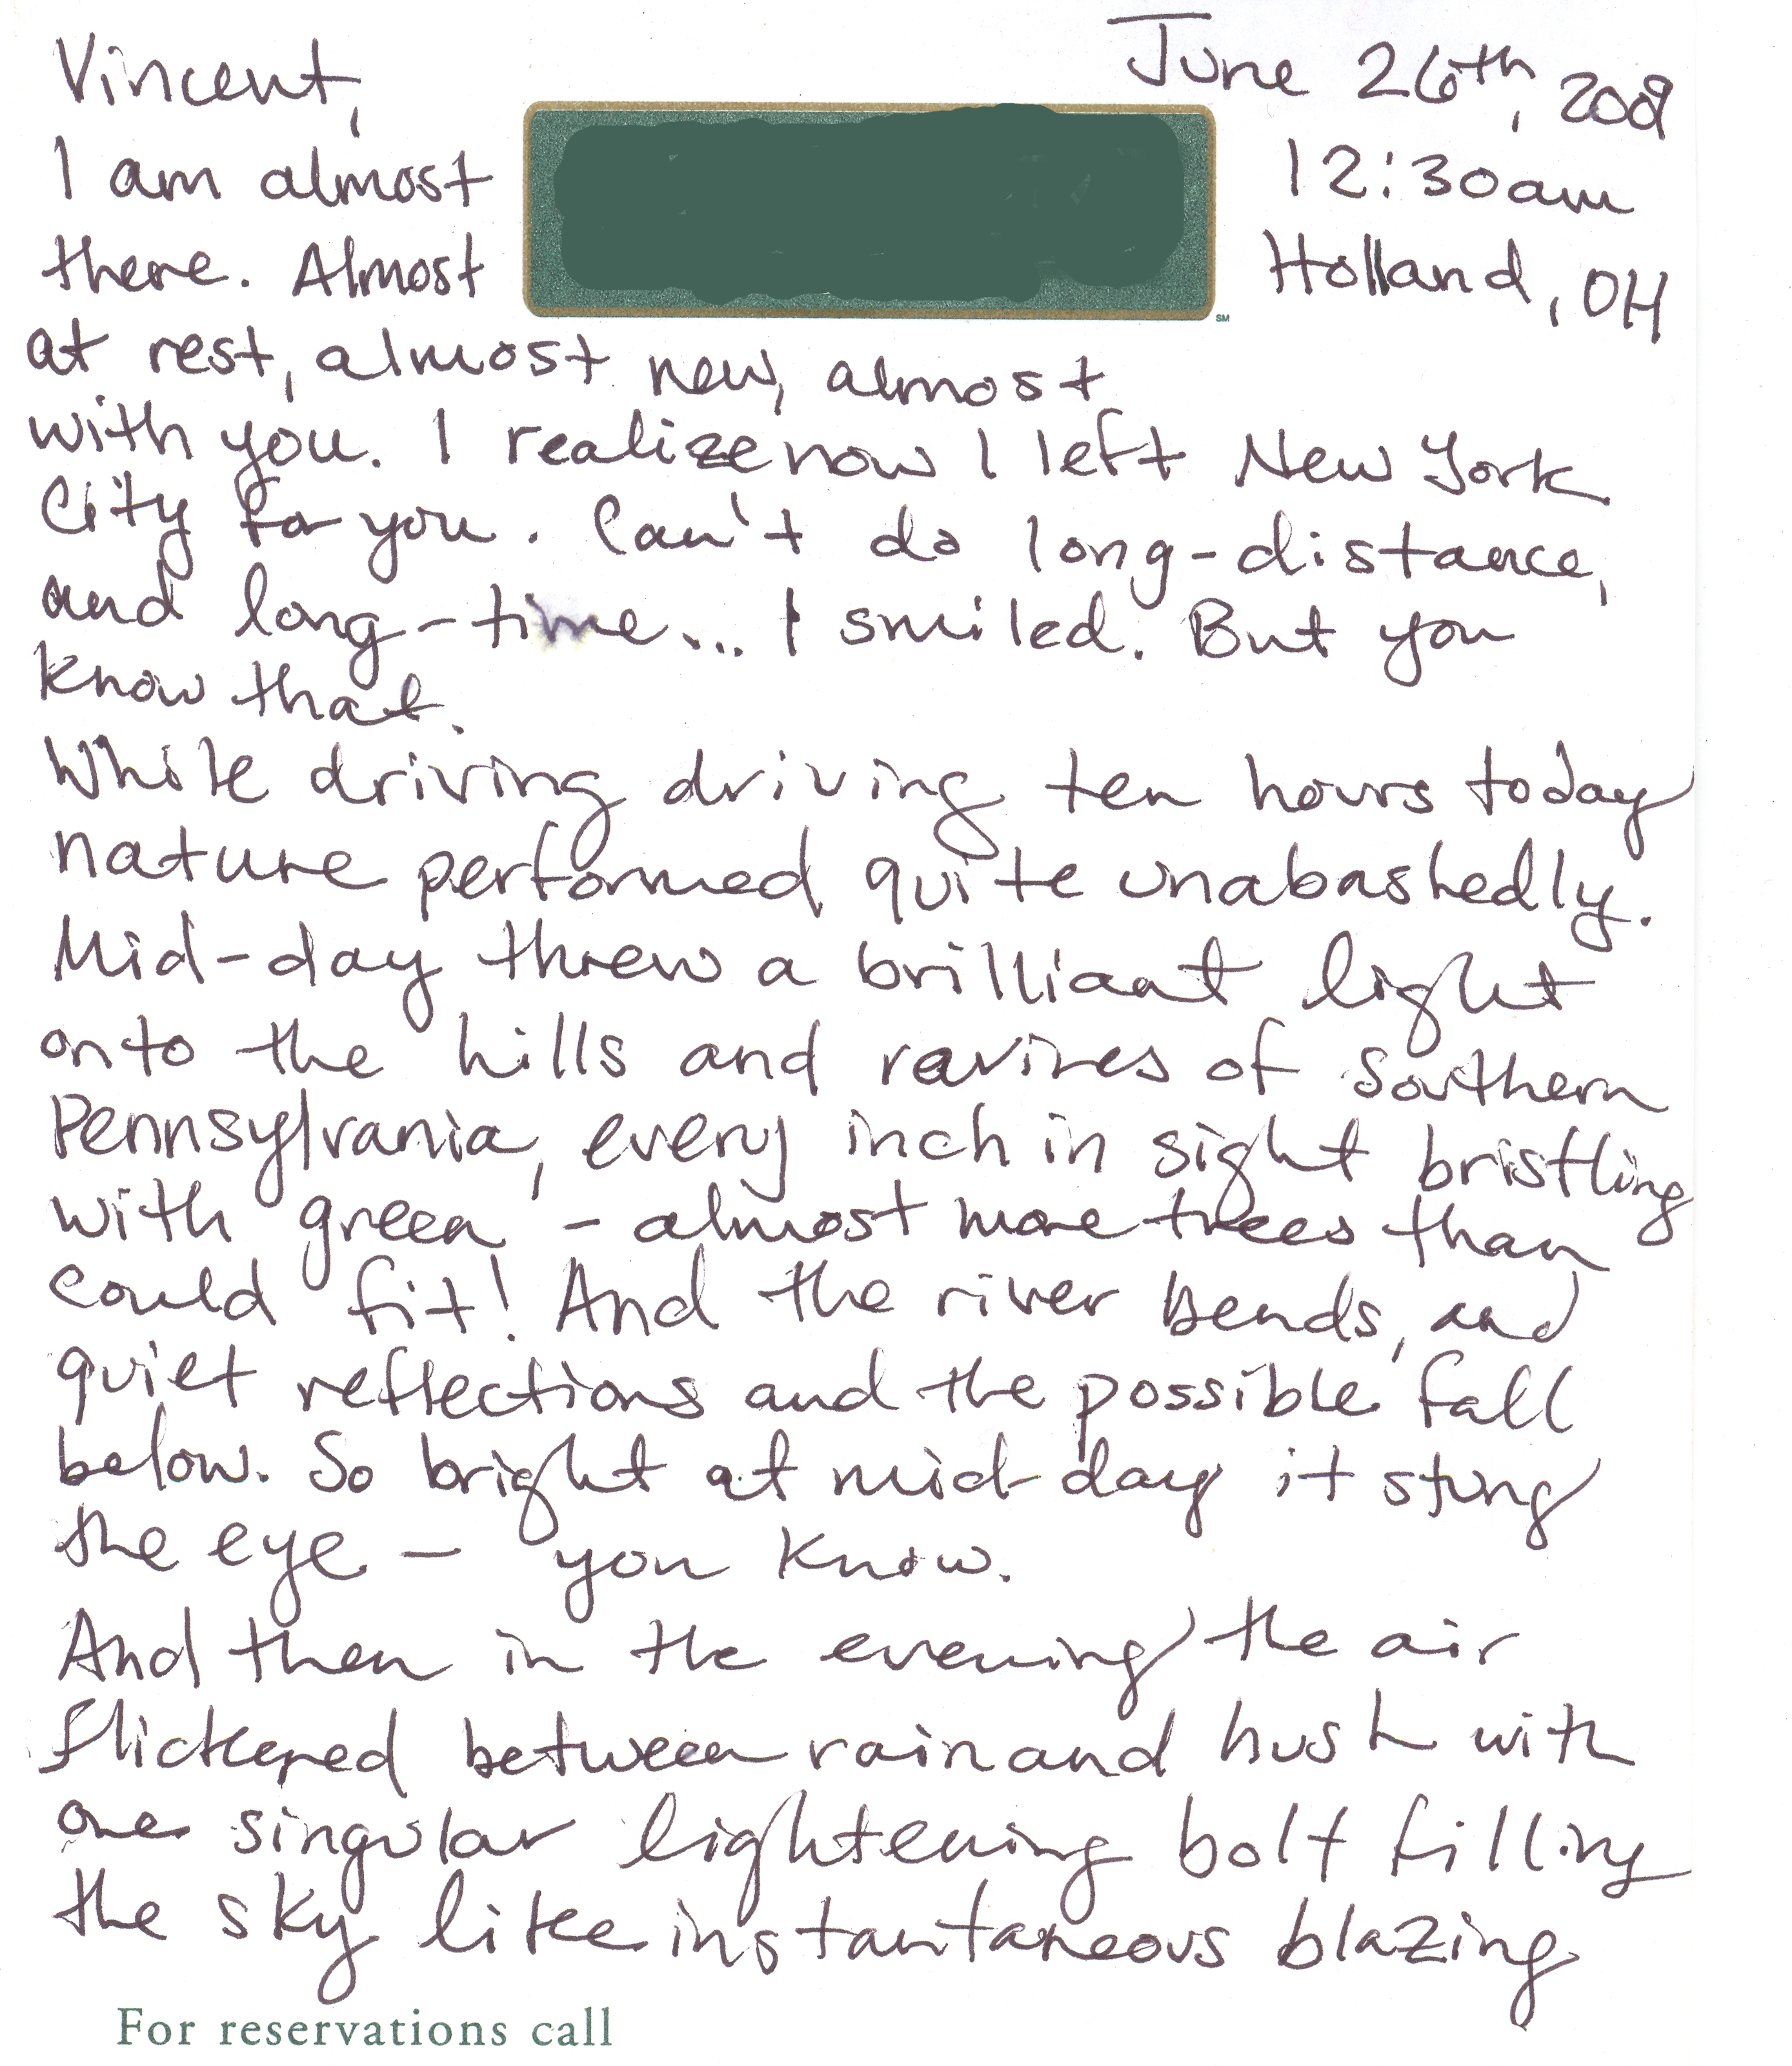 Vincent,
June 26th, 2009
12:30am
Holland, OH
I am almost
there. Almost
at rest, almost new, almost
with you. I realize now I left New York
City for you. Can't do long-distance,
and long-time... I smiled. But you
know that.
While driving driving ten hours today
nature performed quite unabashedly.
Mid-day threw a brilliant light
onto the hills and ravines of Southern
Pennsylvania, every inch in sight bristling
with green - almost more trees than
could fit! And the river bends, and
quiet reflections and the possible fall
below. So bright at mid-day it stung
the eye — you know.
And then in the evening the air
flickered between rain and hush with
one singular lightening bolt filling
the sky like instantaneous blazing
For reservations call
SM